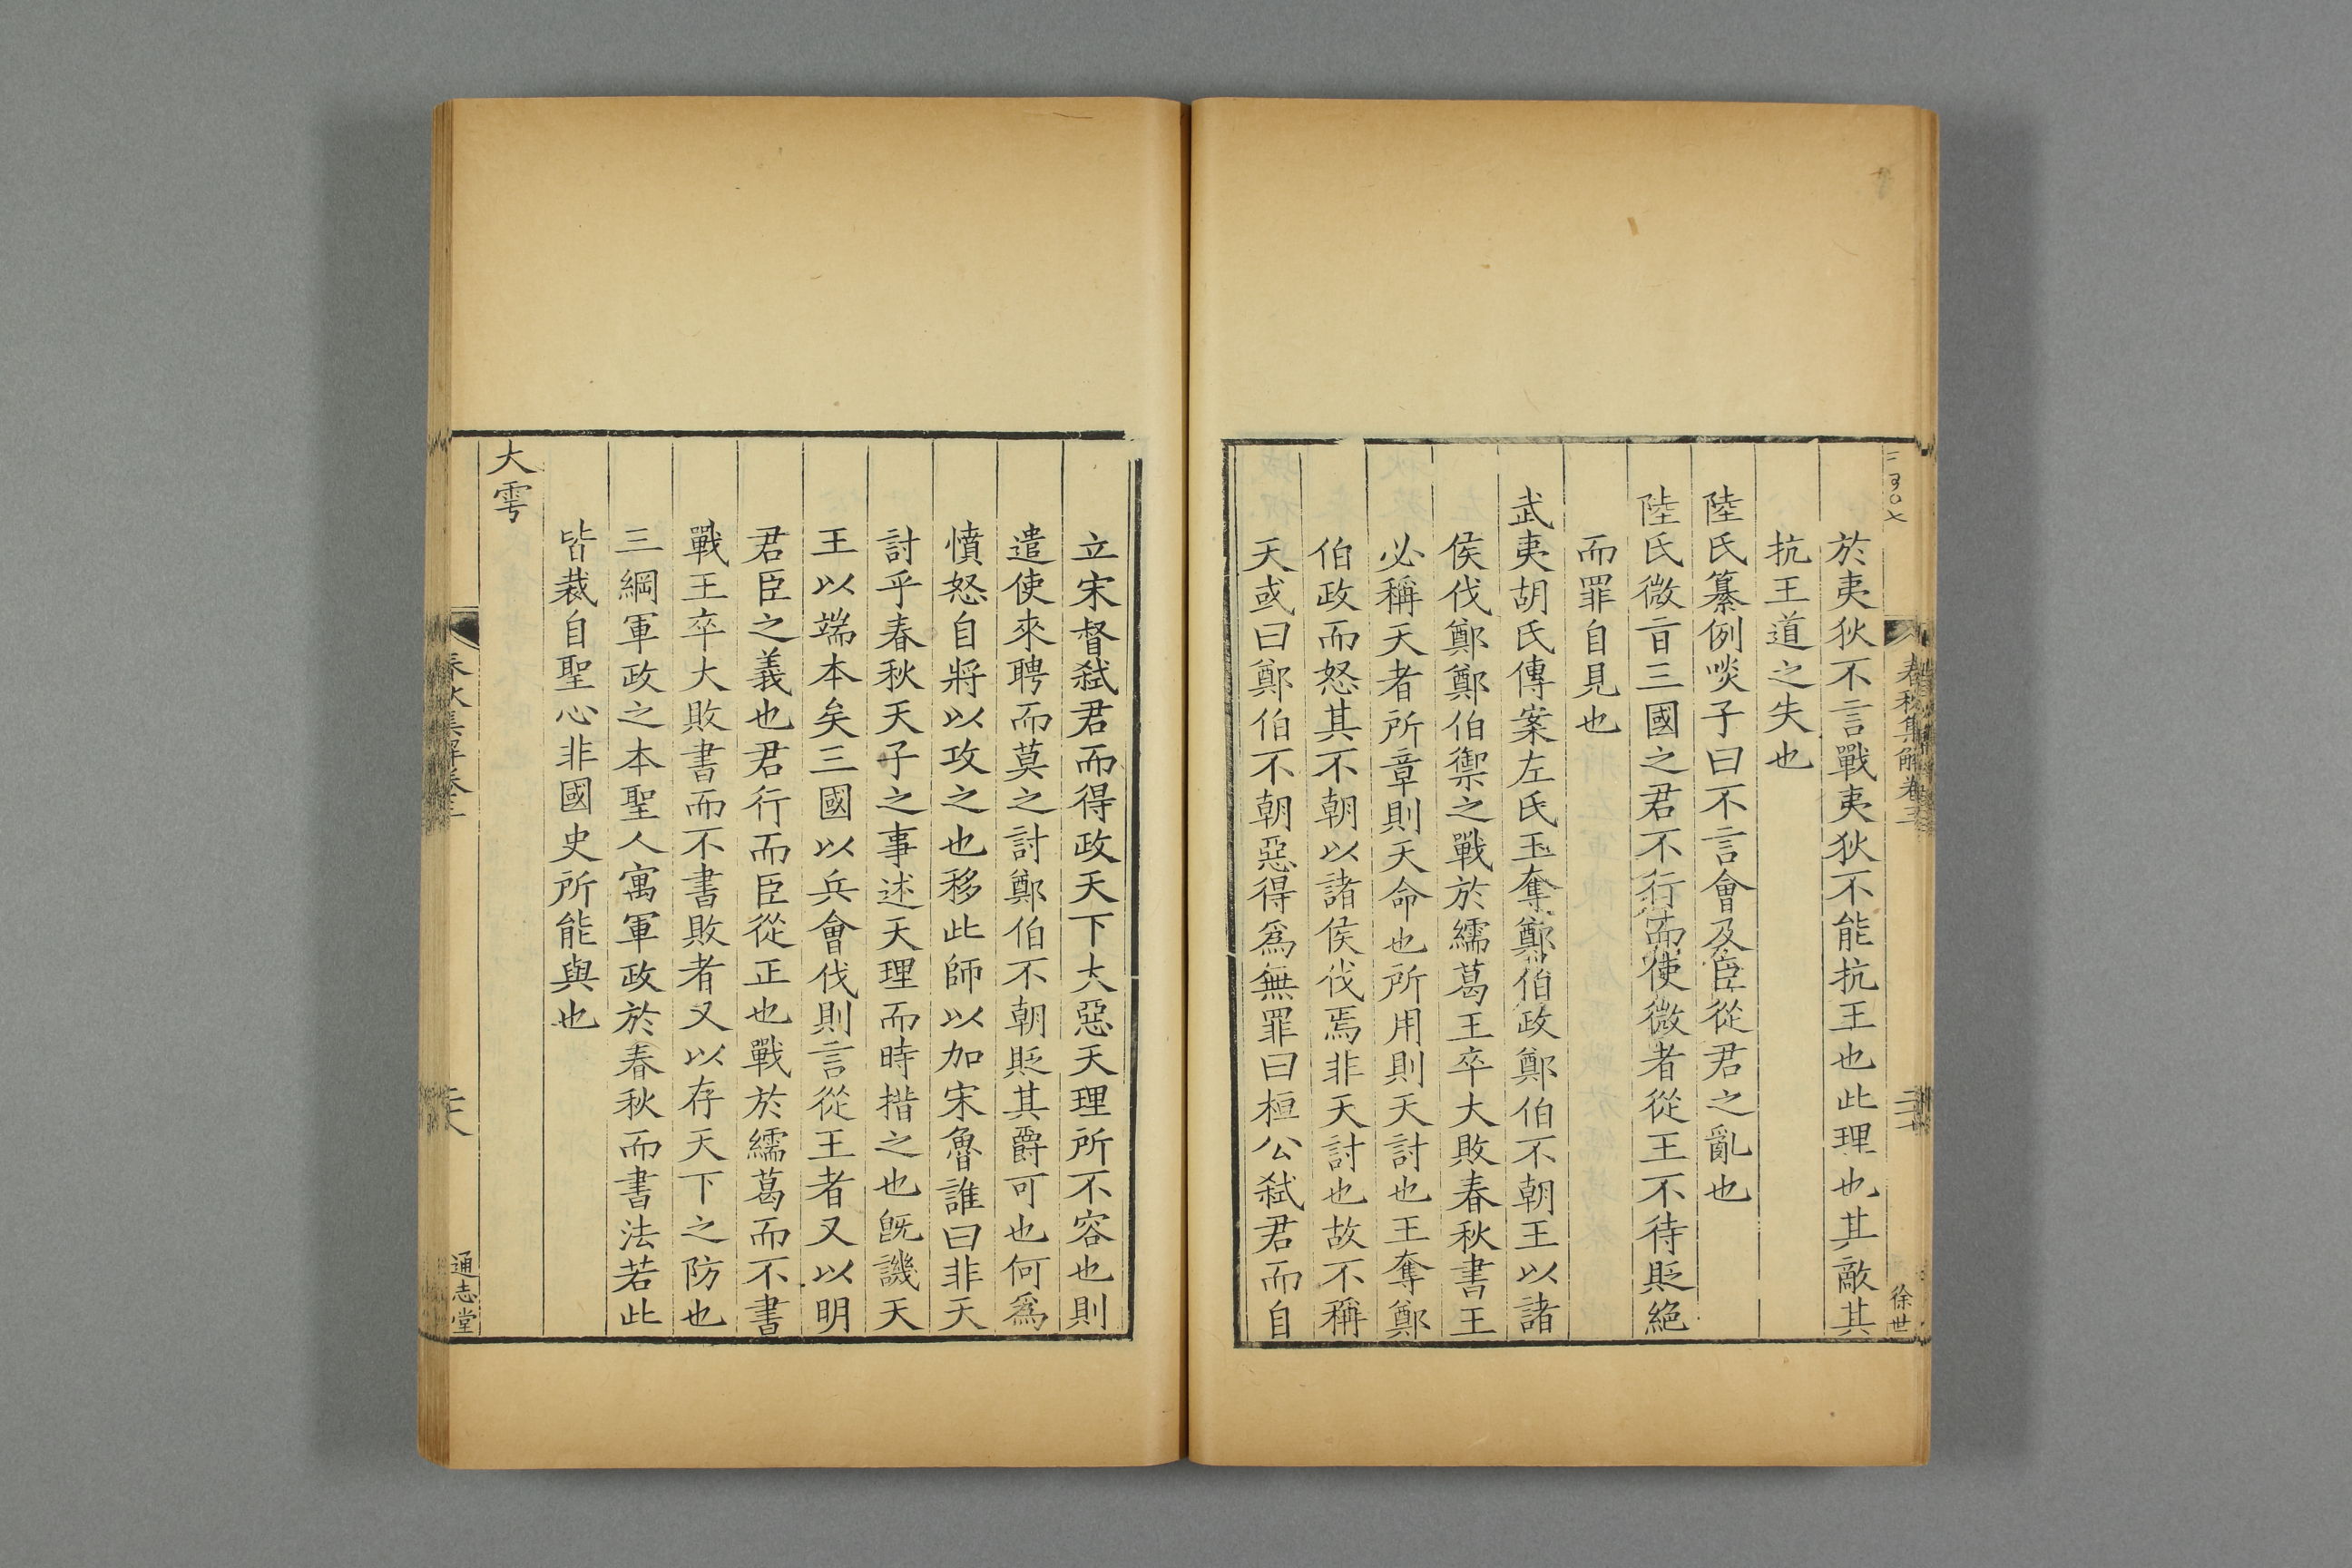 春秋集解卷三
徐世
於夷狄不言戰夷狄不能抗王也此理也其敵其
抗王道之失也
陸氏纂例啖子曰不言會及臣從君之亂也
陸氏微旨三國之君不行而使微者從王不待貶絕
而罪自見也
武夷胡氏傳案左氏王奪鄭伯政鄭伯不朝王以諸
侯伐鄭鄭伯禦之戰於繻葛王卒大敗春秋書王
必稱天者所章則天命也所用則天討也王奪鄭
伯政而怒其不朝以諸侯伐焉非天討也故不稱
天或曰鄭伯不朝惡得爲無罪曰桓公弑君而自
立宋督弑君而得政天下大惡天理所不容也則
遣使來聘而莫之討鄭伯不朝貶其爵可也何爲
憤怒自將以攻之也移此師以加宋魯誰曰非天
討乎春秋天子之事述天理而時措之也旣譏天
王以端本矣三國以兵會伐則言從王者又以明
君臣之義也君行而臣從正也戰於繻葛而不書
戰王卒大敗書而不書敗者又以存天下之防也
三綱軍政之本聖人寓軍政於春秋而書法若此
皆裁自聖心非國史所能與也
大雩
春秋集解卷三
通志堂